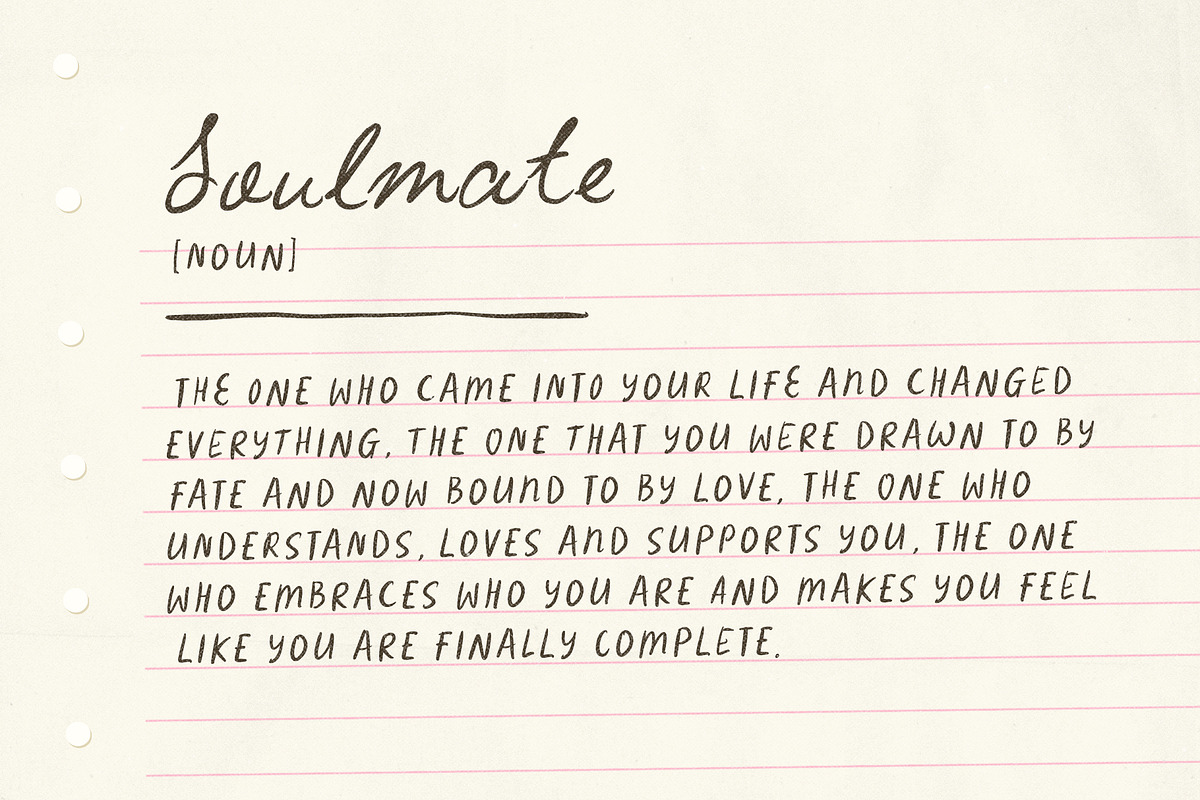 Soulmate
[NOUN]
THE ONE WHO CAME INTO YOUR LIFE AND CHANGED
EVERYTHING, THE ONE THAT YOU WERE DRAWN TO BY
FATE AND NOW BOUND TO BY LOVE, THE ONE WHO
UNDERSTANDS, LOVES AND SUPPORTS YOU, THE ONE
WHO EMBRACES WHO YOU ARE AND MAKES YOU FEEL
LIKE YOU ARE FINALLY COMPLETE.